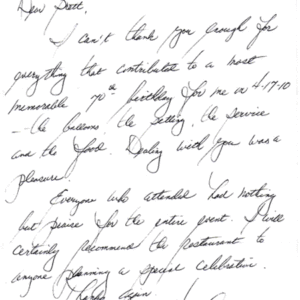 Dear Scott,
I can't thank you enough for
everything that contributed to a most
memorable 70th birthday for me on 4-17-10
-- the balloons, the setting, the service
and the food. Dealing with you was a
pleasure.
Everyone who attended had nothing
but praise for the entire event. I will
certainly recommend the restaurant to
anyone planning a special celebration.
Thanks again!